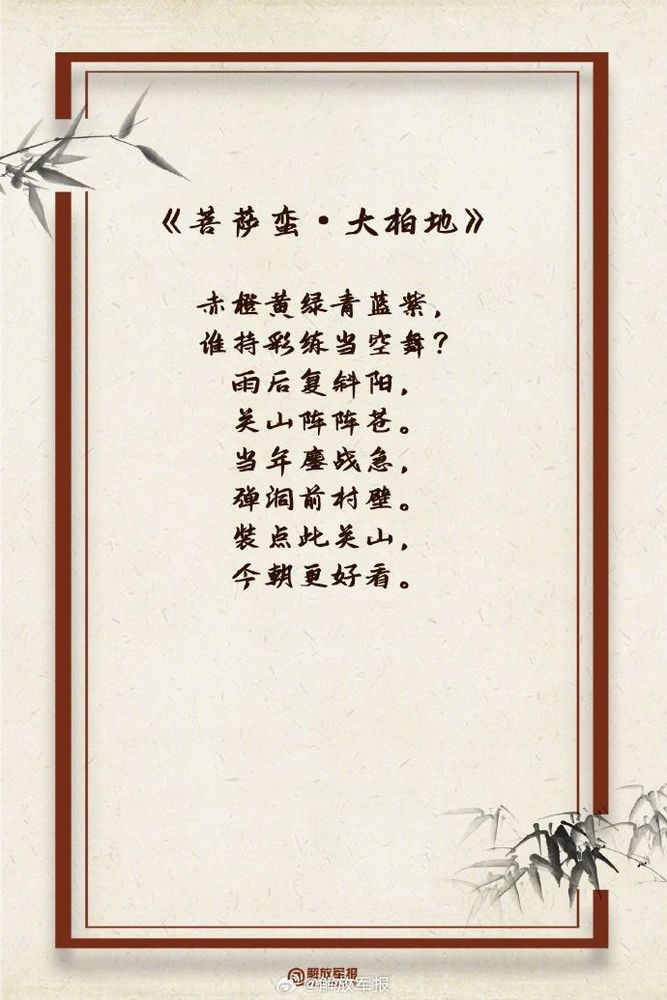 《菩萨蛮·大柏地》
赤橙黄绿青蓝紫，
谁持彩练当空舞？
雨后复斜阳，
关山阵阵苍。
当年鏖战急，
弹洞前村壁。
装点此关山，
今朝更好看。
解放军报
@解放军报